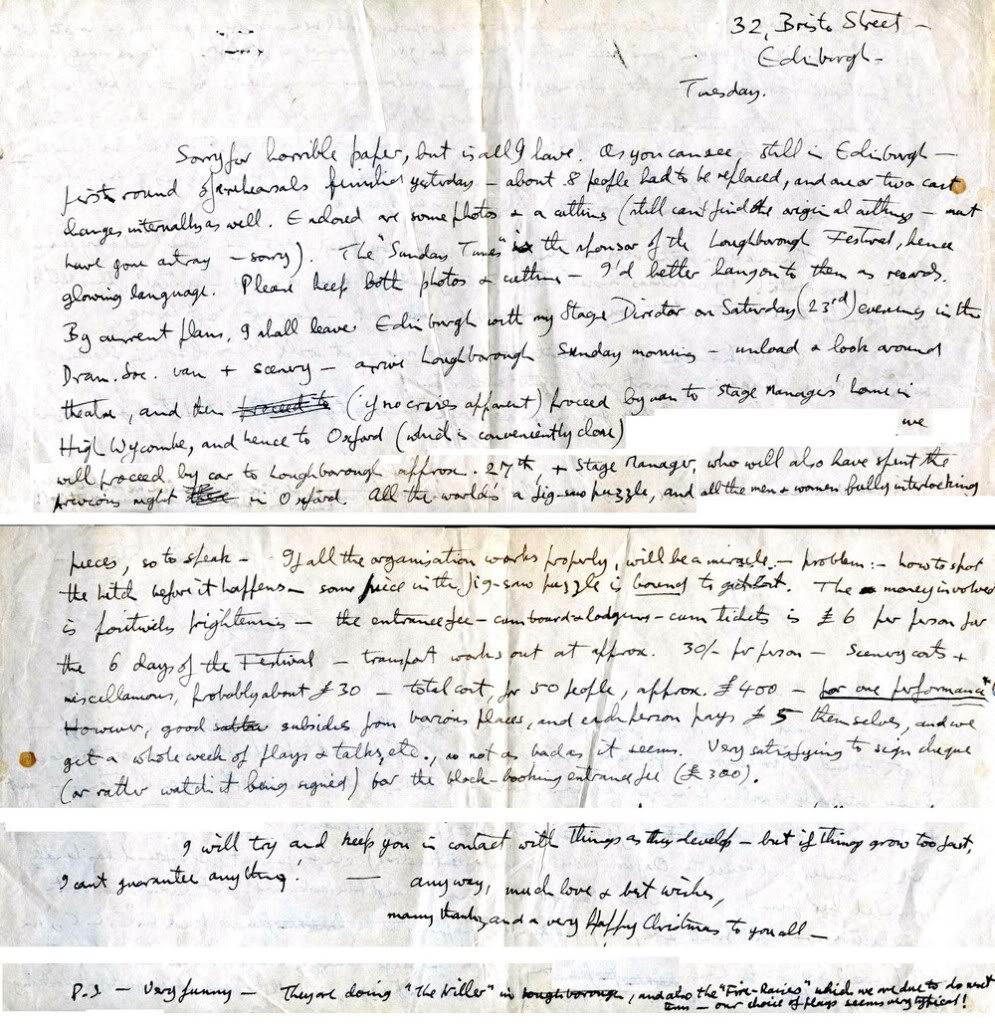 32, Bristo Street –
Edinburgh –
Tuesday.
Sorry for horrible paper, but is all I have. As you can see, still in Edinburgh –
first round of rehearsals finished yesterday – about 8 people had to be replaced, and one or two cast
changes internally as well. Enclosed are some photos & a cutting (still can't find the original cuttings – must
have gone astray – sorry). The "Sunday Times" is the sponsor of the Loughborough Festival, hence
glowing language. Please keep both photos & cutting – I'd better hang on to them as records.
By current plans, I shall leave Edinburgh with my Stage Director on Saturday (23rd) evening in the
Dram. Soc. van + scenery – arrive Loughborough Sunday morning – unload & look around
theatre, and then proceed to (if no crises apparent) proceed by van to Stage Manager's home in
High Wycombe, and hence to Oxford (which is conveniently close)
we
will proceed by car to Loughborough approx. 27th, + Stage Manager, who will also have spent the
previous night in Oxford. All the world's a jig-saw puzzle, and all the men & women fully interlocking
pieces, so to speak – If all the organisation works properly, will be a miracle – problem:- how to spot
the hitch before it happens – some piece in the jig-saw puzzle is bound to get lost. The money involved
is positively frightening – the entrance fee – cum board & lodgings – cum tickets is £6 per person for
the 6 days of the Festival – transport works out at approx. 30/- per person – scenery costs +
miscellaneous, probably about £30 – total cost, for 50 people, approx. £400 – for one performance!
However, good subsidies from various places, and each person pays £5 themselves, and we
get a whole week of plays & talks, etc., so not as bad as it seems. Very satisfying to sign cheque
(or rather watch it being signed) for the block-booking entrance fee (£300).
I will try and keep you in contact with things as they develop – but if things grow too fast,
I can't guarantee anything! — anyway, much love & best wishes,
many thanks, and a very Happy Christmas to you all –
P.S – Very funny – They are doing "The Killer" in Loughborough, and also the "Fire-Raisers" which we are due to do next
term – our choice of plays seems very typical!